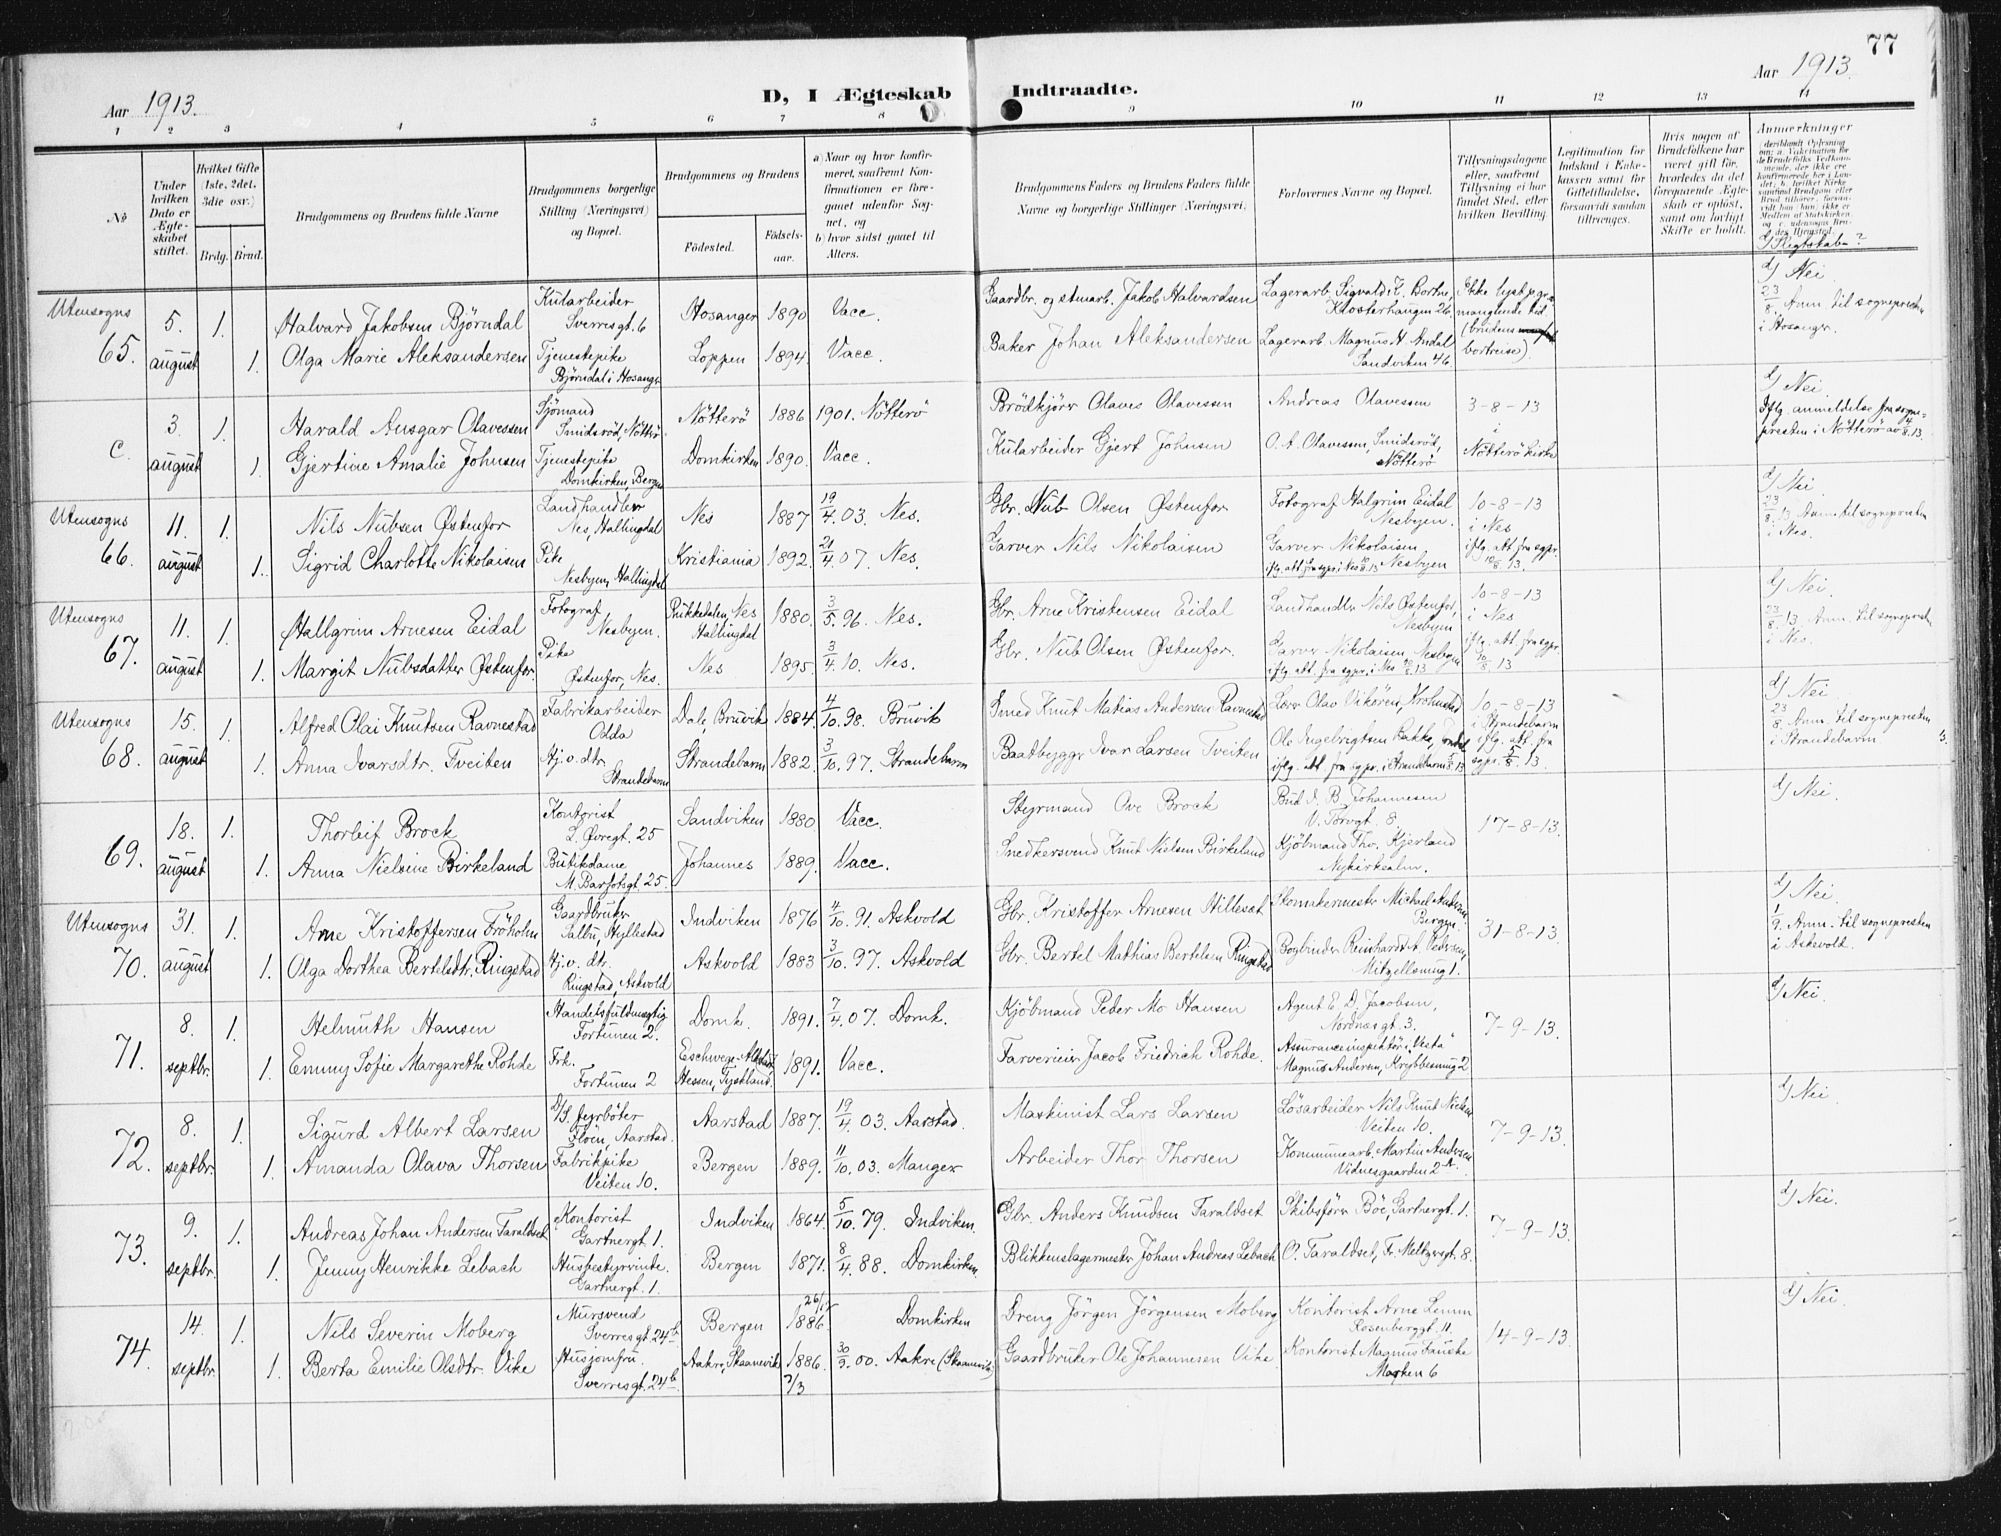 77
Aar 1913.
D, I Ægteskab Indtraadte.
Aar 1913.
1 2 3 4 5 6 7 8 9 10 11 12 13 14
No
Under hvilken Dato er Ægteskabet stiftet.
Hvilket Gifte (1ste, 2det, 3die osv.)
Brdg. Brud.
Brudgommens og Brudens fulde Navne
Brudgommens borgerlige Stilling (Næringsvei) og Bopæl.
Brudgommens og Brudens
Fødested. Fødselsaar.
a) Naar og hvor konfirmeret, saafremt Konfirmationen er foregaaet udenfor Sognet, og
b) hvor sidst gaaet til Alters.
Brudgommens Faders og Brudens Faders fulde Navne og borgerlige Stillinger (Næringsvei).
Forlovernes Navne og Bopæl.
Tillysningsdagene eller, saafremt Tillysning ei har fundet Sted, efter hvilken Bevilling.
Legitimation for Indskud i Enkekassen samt for Giftetilladelse, forsaavidt saadan tiltrænges.
Hvis nogen af Brudefolkene har været gift før, hvorledes da det foregaaende Ægteskab er opløst, samt om lovligt Skifte er holdt.
Anmerkninger
d/ Slegtskab?
Utensogns 65. 5. august 1.
Halvard Jakobsen Björndal
Kularbeider Sverresgt. 6
Hosanger 1890 Vacc.
Gaardbr. og stenarb. Jakob Halvardsen
Lagerarb. Sigvald K. Bortne, Klosterhaugen 26.
Ikke lyst pgr. manglende tid. (brudens bortreise).
d/ Nei 23/8. Anm. til sognepresten i Hosangr.
1. Olga Marie Aleksandersen
Tjenestepike Björndal i Hosangr.
Loppen 1894 Vacc.
Baker Johan Aleksandersen
Lagerarb. Magnus H. Andal Sandviken 46
C. 3. august 1.
Harald Ansgar Olavessen
Sjömand Smidsröd, Nötterö.
Nötterö 1886 1901. Nötterö
Brödkjörer Olaves Olavessen
Andreas Olavessen
3-8-13 i Nötterö kirke
d/ Nei Iflg. anmeldelse fra sognepresten i Nötterö av 4/8.13.
1. Gjertine Amalie Johnsen
Tjenestepike Domkirken, Bergen
Domkirken 1890. Vacc.
Kularbeider Gjert Johnsen
O. A. Olavessen, Smidsröd, Nötterö
Utensogns 66. 11. august 1.
Nils Nubsen Østenfor
Landhandler Nes, Hallingdal
Nes 1887 19/4. 03. Nes.
Gbr. Nub Olsen Østenfor
Fotograf Halgrim Eidal Nesbyen.
10-8-13 i Nes iflg. att. fra sgpr. 10/8. 13.
d/ Nei 23/8. 13 Anm. til sognepresten i Nes.
1. Sigrid Charlotte Nikolaisen
Pike Nesbyen, Hallingdal
Kristiania 1892. 21/4. 07. Nes.
Garver Nils Nikolaisen
Garver Nikolaisen Nesbyen
iflg. att. fra sgpr. i Nes 10/8. 13
Utensogns 67. 11. august 1.
Hallgrim Arnesen Eidal
Fotograf Nesbyen.
Rukkedalen, Nes Hallingdal 1880. 3/5. 96. Nes.
Gbr. Arne Kristensen Eidal
Landhandler Nils Østenfor, Nesbyen
10-8-13 i Nes iflg. att. fra sgpr. 10/8 13
d/ Nei. 23/8. 13 Anm. til sognepresten i Nes.
1. Margit Nubsdatter Østenfor.
Pike Østenfor, Nes.
Nes 1895. 3/4. 10. Nes.
Gbr. Nub Olsen Østenfor.
Garver Nikolaisen Nesbyen
iflg. att. fra sgpr. i Nes 10/8. 13
Utensogns 68. 15. august 1.
Alfred Olai Knutsen Ravnestad
Fabrikarbeider Odda
Dale, Bruvik 1884. 4/10. 98. Bruvik
Smed Knut Matias Andersen Ravnestad
Lærer Olav Vikören, Krohnstad
10-8-13 i Strandebarm iflg. att. fra sgpr. 5/8. 13.
d/ Nei 23/8. Anm. til sognepresten i Strandebarm
1. Anna Ivarsdtr. Tveiten
Hj. v. dtr. Strandebarm
Strandebarm 1882. 3/10. 97. Strandebarm
Baatbygger Ivar Larsen Tveiten
Ole Ingebrigtsen Bakke,
iflg. att. fra sgpr. i Strandebarm 5/8 13
69. 18. august 1.
Thorleif Brock
Kontorist L. Øvregt. 25
Sandviken 1880 Vacc.
Styrmand Ove Brock
Bud J. B. Johannesen V. Torvgt. 8.
17-8-13.
d/ Nei.
1. Anna Nielsine Birkeland
Butikdame M. Barfotsgt. 25.
Johannes 1889. Vacc.
Snedkersvend Knut Nielsen Birkeland
Kjöbmand Thv. Kjerland Nykirkealm.
Utensogns 70. 31. august 1.
Arne Kristoffersen Fröholm
Gaardbruker Salbu, Hyllestad
Indviken 1876 4/10. 91. Askvold
Gbr. Kristoffer Arnesen Hillesæt
Skomakermester Michael Andersen Bergen.
31-8-13.
d/ Nei. 1/9. Anm. til sognepresten i Askvold.
1. Olga Dorthea Bertelsdtr. Ringstad
Hj. v. dtr. Ringstad, Askvold
Askvold 1883 3/10. 97. Askvold
Gbr. Bertel Mathias Bertelsen Ringstad
Bogbinder Reinhardt A. Pedersen, Mitzellsmug 1.
71. 8. septbr. 1.
Helmuth Hansen
Handelsfuldmægtig Fortunen 2.
Domk. 1891. 7/4. 07. Domk.
Kjöbmand Peder Mo Hansen
Agent E. D. Jacobsen, Nordnæsgt. 3.
7-9-13.
d/ Nei.
1. Emmy Sofie Margarethe Rohde
Frk. Fortunen 2
Eschwege-Altstadt Hessen, Tyskland. 1891. Vacc.
Farverieier Jacob Friedrich Rohde.
Assuranceinspektör i "Vesta" Magnus Andersen, Krybbesmug 2
72. 8. septbr. 1.
Sigurd Albert Larsen
D/S. fyrböter Flöen, Aarstad.
Aarstad 1887. 19/4. 03. Aarstad.
Maskinist Lars Larsen
Lösarbeider Nils Knut Nielsen Veiten 10.
7-9-13.
d/ Nei.
1. Amanda Olava Thorsen
Fabrikpike Veiten 10.
Bergen 1889. 11/10. 03. Manger
Arbeider Thor Thorsen
Kommunearb. Martin Andersen Vidnesgaarden 2 A.
73. 9. septbr. 1.
Andreas Johan Andersen Taraldset
Kontorist Gartnergt. 1.
Indviken 1864. 5/10. 79. Indviken.
Gbr. Anders Knudsen Taraldset
Skibsförer Böe, Gartnergt. 1.
7-9-13.
d/ Nei.
1. Jenny Henrikke Lebach
Husbestyrerinde. Gartnergt. 1.
Bergen 1871. 8/4. 88. Domkirken.
Blikkenslagermester Johan Andreas Lebach
O. Taraldset, Fr. Meltzersgt. 8.
74. 14. septbr. 1.
Nils Severin Moberg
Mursvend Sverresgt. 24 b.
Bergen 1886. Domkirken
Dreng Jörgen Jörgensen Moberg
Kontorist Arne Lemm Rosenberggt. 11.
14-9-13.
d/ Nei.
1. Berta Emilie Olsdtr. Vike
Husjomfru. Sverresgt. 24 b.
Aakre, Skaanevik 1886. 7/3 30/9. 00. Aakre (Skaanevik)
Gaardbruker Ole Johannesen Vike
Kontorist Magnus Fauske Marken 6